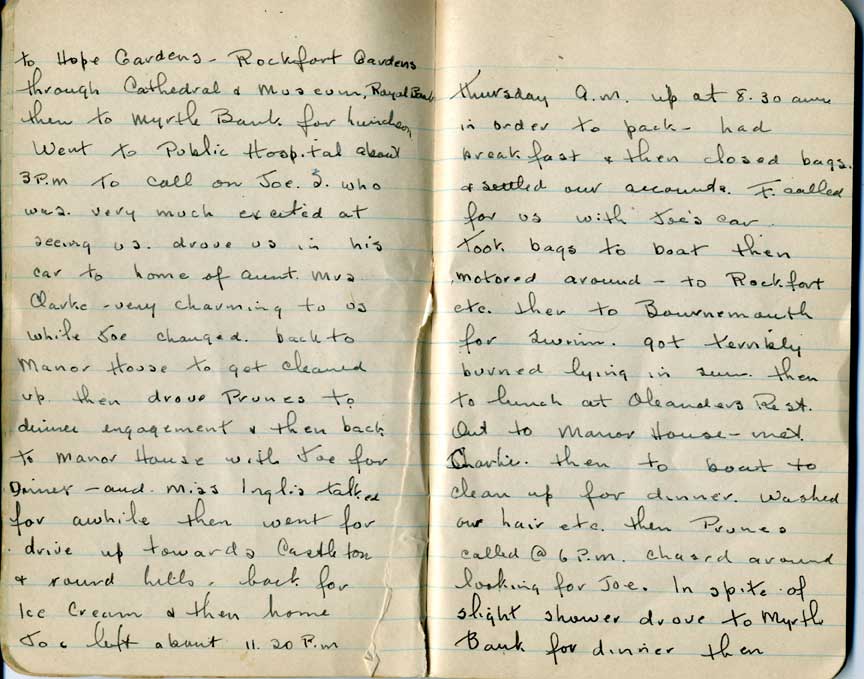 to Hope Gardens - Rockfort Gardens
through Cathedral & Museum, Royal Bank
then to Myrtle Bank for luncheon
Went to Public Hospital about
3 P.m to call on Joe. S. who
was. very much excited at
seeing us. drove us in his
car to home of aunt. Mrs
Clarke - very charming to us
while Joe changed. back to
Manor House to get cleaned
up then drove Prunes to
dinner engagement & then back
to Manor House with Joe for
Dinner - and. Miss Inglis talked
for awhile then went for
drive up towards Castleton
& round hills. back for
Ice Cream & then home
Joe left about 11.20 P.m
Thursday A.M. up at 8.30
in order to pack - had
breakfast & then closed bags.
& settled our accounts. F. called
for us with Joe's car.
Took bags to boat then
motored around - to Rockfort
etc. then to Bournemouth
for swim. got terribly
burned lying in sun. then
to lunch at Oleanders Rest.
Out to Manor House - met
Charlie. then to boat to
clean up for dinner. Washed
our hair etc. then Prunes
called @ 6 P.m. chased around
looking for Joe. In spite of
slight shower drove to Myrtle
Bank for dinner then